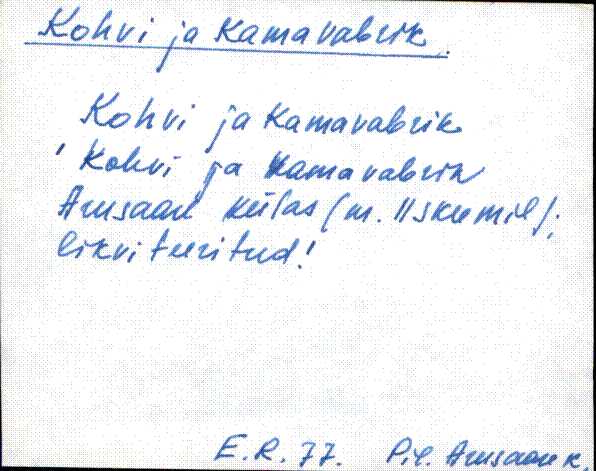 Kohvi ja Kamavabrik.
Kohvi ja Kamavabrik
' Kohvi ja Kamavabrik
Arusaare külas (m.
likviteeritud!
E.R. 77. Pil. Arusaare k.